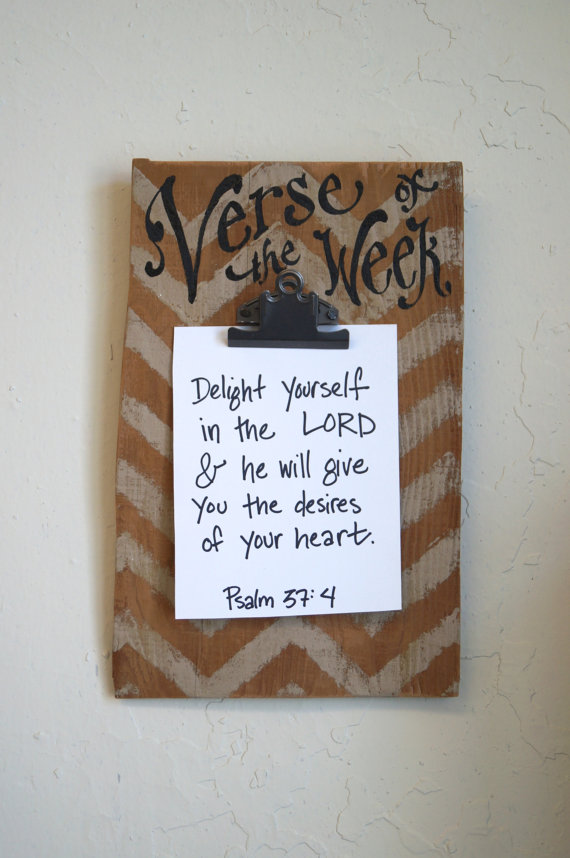 Verse of
the Week
Delight yourself
in the LORD
& he will give
you the desires
of your heart.
Psalm 37:4